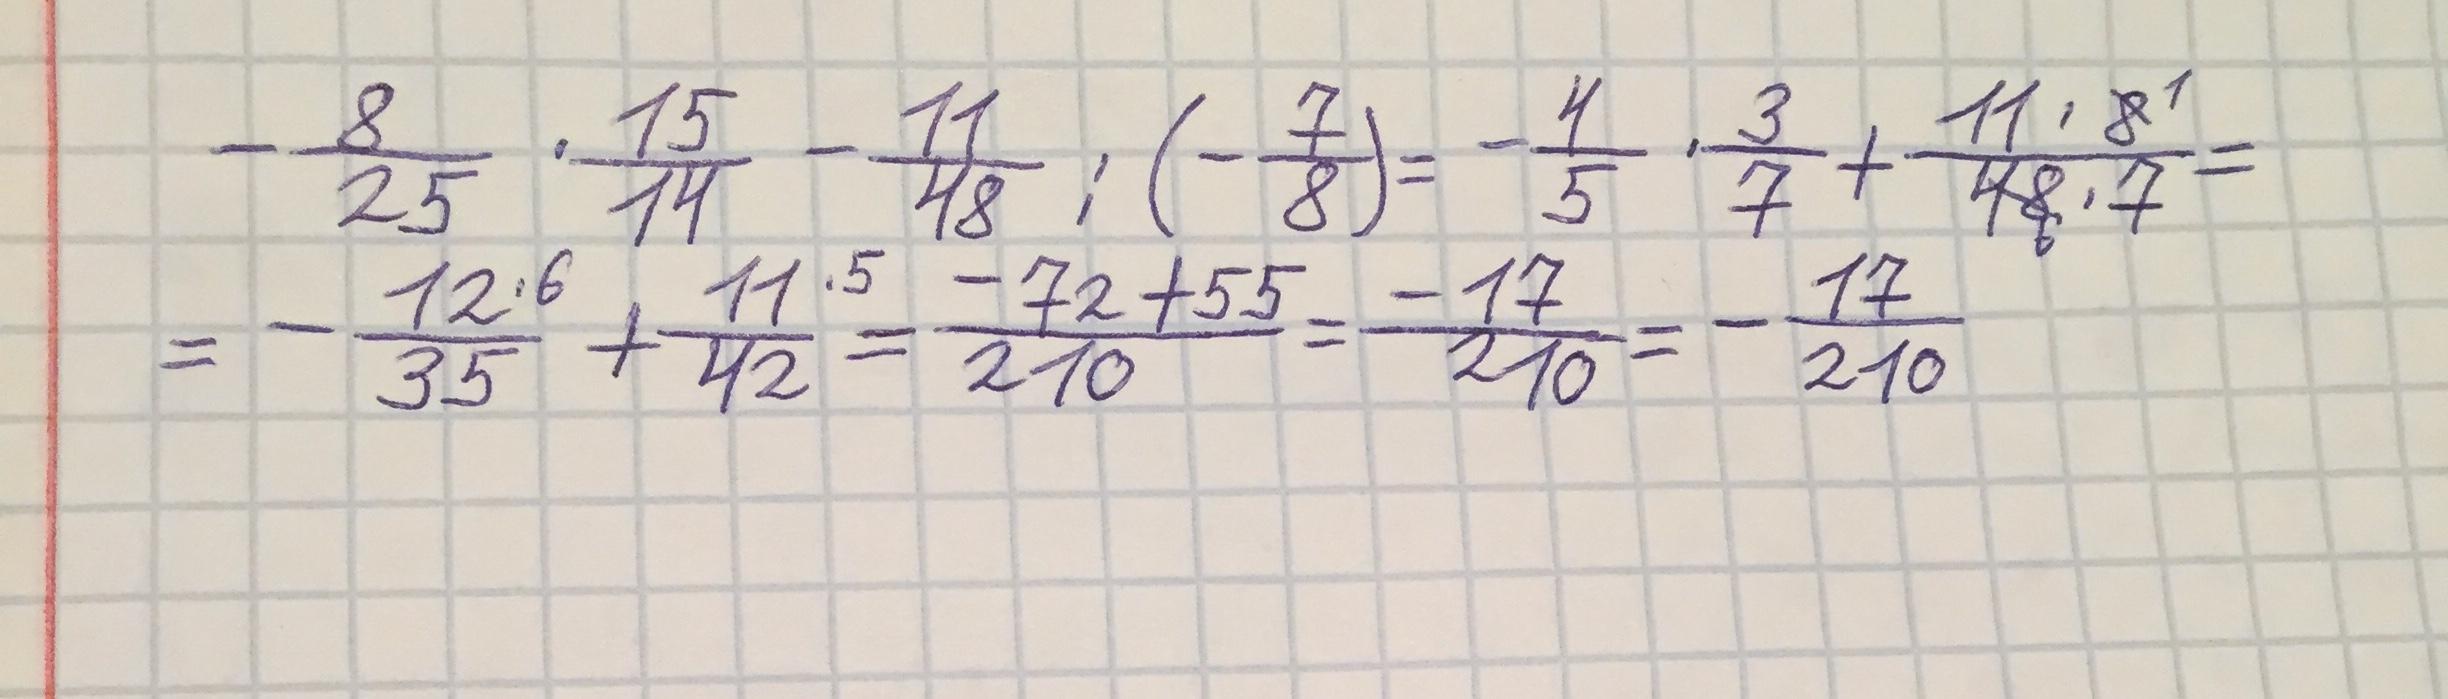 -8/25 · 15/14 - 11/48 : (-7/8) = -4/5 · 3/7 + 11·8¹/48₆·7 =
= -12·6/35 + 11·5/42 = -72+55/210 = -17/210 = -17/210